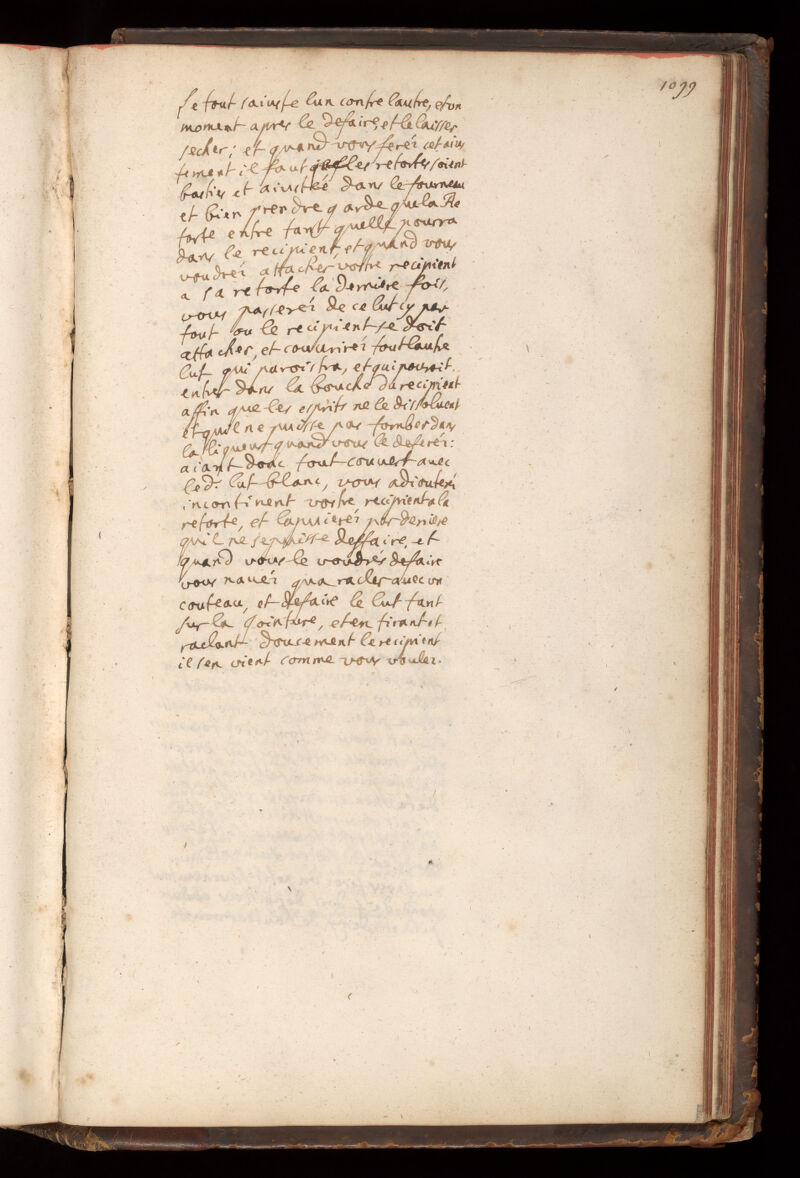 1099
se tout saiuste lun contre lautre, et un
moment apres le defaire, et le laisser
secher; et quand vous ferez cet aius
tement il faut que les retortes soient
basties et aiustée dans le fourneau
et bien prendre garde que la Re
torte entre tant quelle pourra
dans le recipient, et quand vous
voudrez attacher vostre recipient
a sa retorte la derniere fois,
vous passerez de ce lut cy par
tout ou le recipient se doit
attacher, et couurirez tout lautre
lut qui paroistra, et qui pouroit
entrer dans la bouche du recipient
affin que les esprits ne le dissoluent
et quil ne puisse pas tomber dans
la liqueur quand vous le deferez:
aiant donc tout couuert auec
le d: lut blanc, vous adiouterez
incontinent vostre recipient a la
retorte, et lapuierez par deriere
quil ne se puisse deffaire, et
quand vous le voudrés defaire
vous nauez qua racler auec un
couteau, et defaire le lut tant
sur la jointure, et en tirant et
raclant doucement le recipient
il sen vient comme vous voulez.